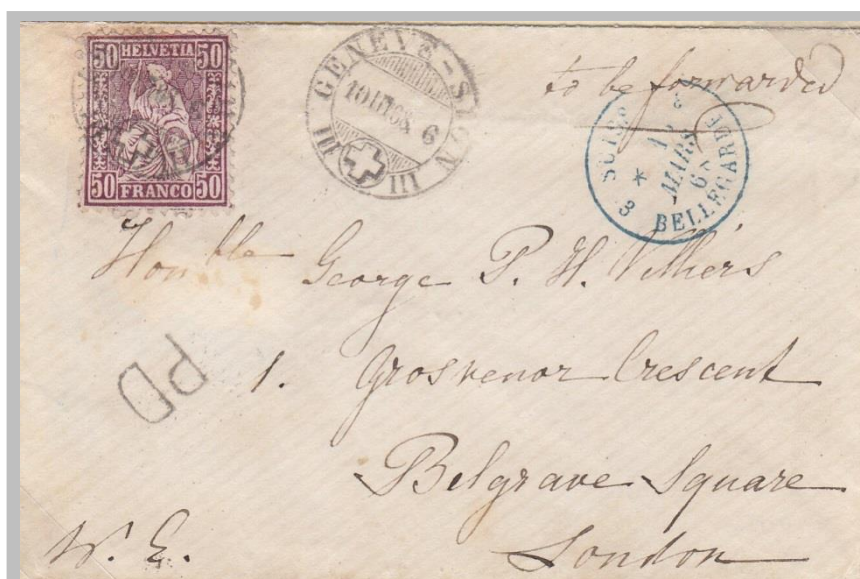 50 HELVETIA 50
50 FRANCO 50
GENÈVE - SION
10 III 68 6
III III
to be forwarded
MARS
68
3 BELLEGARDE
Honble George P. H. Villiers
PD
1. Grosvenor Crescent
Belgrave Square
London